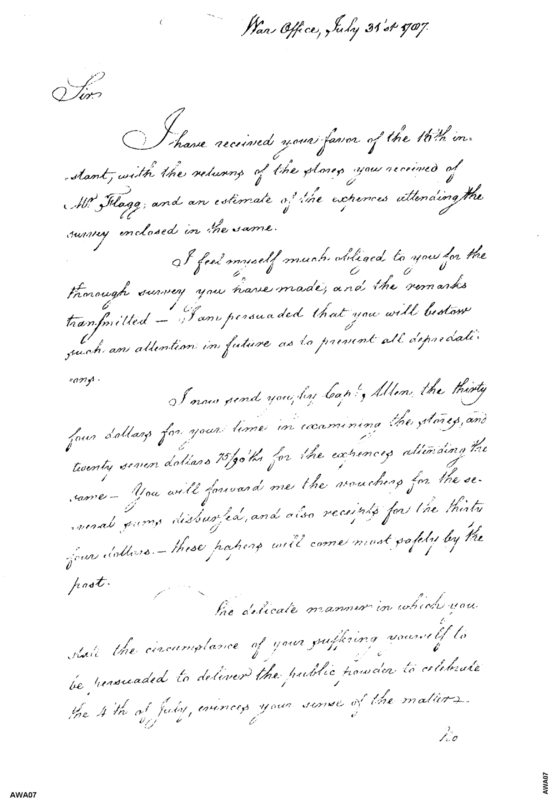 War Office, July 31st 1787.
Sir
I have received your favor of the 16th in-
stant, with the returns of the stores you received of
Mr Flagg, and an estimate of the expences attending the
survey enclosed in the same.
I feel myself much obliged to you for the
thorough survey you have made, and the remarks
transmitted — I am persuaded that you will bestow
such an attention in future as to prevent all depredati-
ons.
I now send you, by Capt. Allen, the thirty
four dollars for your time in examining the stores, and
twenty seven dollars 75/90ths for the expences attending the
same — You will forward me the vouchers for the se-
veral sums disbursed, and also receipts for the thirty
four dollars. — these papers will come most safely by the
post.
The delicate manner in which you
state the circumstance of your suffering yourself to
be persuaded to deliver the public powder to celebrate
the 4th of July, evinces your sense of the matter.
No
AWA07
AWA07